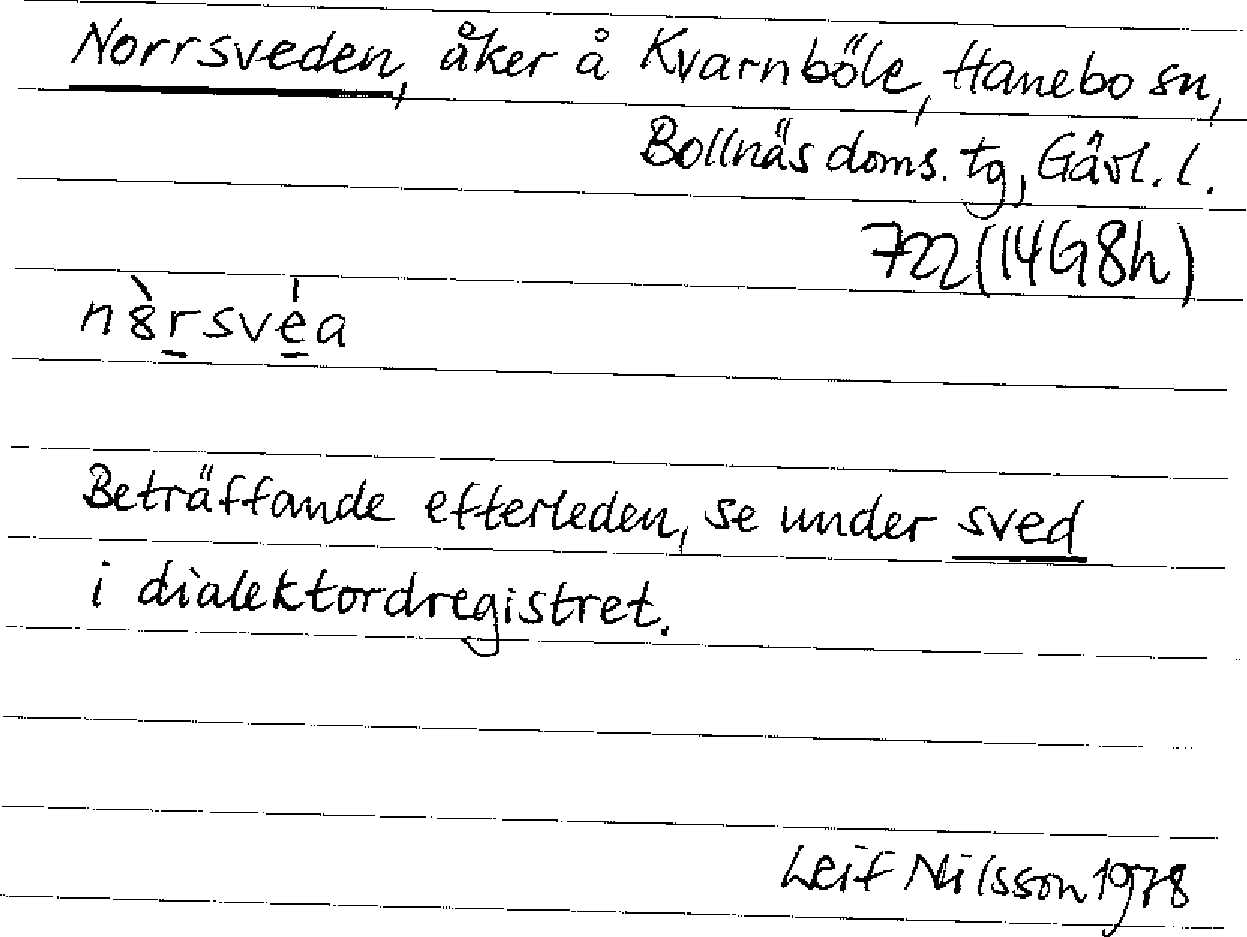 Norrsveden, åker å Kvarnböle, Hanebo sn,
Bollnäs doms. tg, Gävl. l.
722 (14G8h)
n8̀rsve̍a
Beträffande efterleden, se under sved
i dialektordregistret.
Leif Nilsson 1978